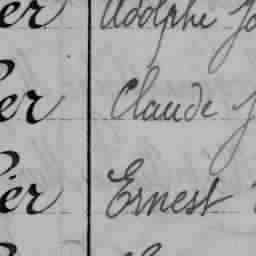 er Adolphe Jo
er Claude J
ier Ernest